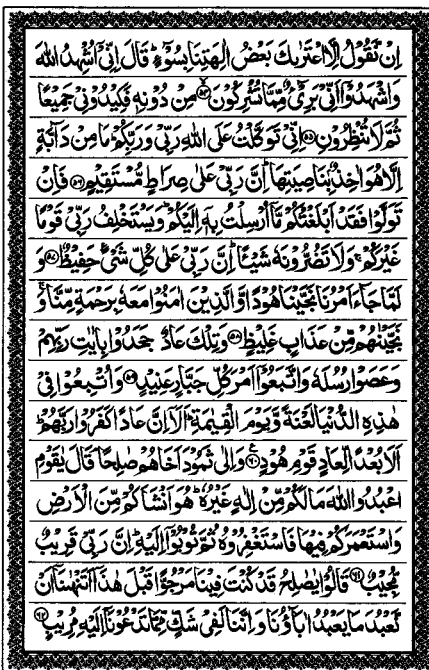 اِنْ نَّقُوْلُ اِلَّا اعْتَرٰىكَ بَعْضُ اٰلِهَتِنَا بِسُوْٓءٍ ؕ قَالَ اِنِّیْۤ اُشْهِدُ اللّٰهَ
وَاشْهَدُوْۤا اَنِّیْ بَرِیْٓءٌ مِّمَّا تُشْرِكُوْنَ ۙ۵۴ مِنْ دُوْنِهٖ فَكِیْدُوْنِیْ جَمِیْعًا
ثُمَّ لَا تُنْظِرُوْنِ ۵۵ اِنِّیْ تَوَكَّلْتُ عَلَی اللّٰهِ رَبِّیْ وَرَبِّكُمْ ؕ مَا مِنْ دَآبَّةٍ
اِلَّا هُوَ اٰخِذٌۢ بِنَاصِیَتِهَا ؕ اِنَّ رَبِّیْ عَلٰی صِرَاطٍ مُّسْتَقِیْمٍ ۵۶ فَاِنْ
تَوَلَّوْا فَقَدْ اَبْلَغْتُكُمْ مَّاۤ اُرْسِلْتُ بِهٖۤ اِلَیْكُمْ ؕ وَیَسْتَخْلِفُ رَبِّیْ قَوْمًا
غَیْرَكُمْ ۚ وَلَا تَضُرُّوْنَهٗ شَیْـًٔا ؕ اِنَّ رَبِّیْ عَلٰی كُلِّ شَیْءٍ حَفِیْظٌ ۵۷ وَ
لَمَّا جَآءَ اَمْرُنَا نَجَّیْنَا هُوْدًا وَّالَّذِیْنَ اٰمَنُوْا مَعَهٗ بِرَحْمَةٍ مِّنَّا ۚ وَ
نَجَّیْنٰهُمْ مِّنْ عَذَابٍ غَلِیْظٍ ۵۸ وَتِلْكَ عَادٌ ۙ جَحَدُوْا بِاٰیٰتِ رَبِّهِمْ
وَعَصَوْا رُسُلَهٗ وَاتَّبَعُوْۤا اَمْرَ كُلِّ جَبَّارٍ عَنِیْدٍ ۵۹ وَاُتْبِعُوْا فِیْ
هٰذِهِ الدُّنْیَا لَعْنَةً وَّیَوْمَ الْقِیٰمَةِ ؕ اَلَاۤ اِنَّ عَادًا كَفَرُوْا رَبَّهُمْ ؕ
اَلَا بُعْدًا لِّعَادٍ قَوْمِ هُوْدٍ ۶۰ ع وَاِلٰی ثَمُوْدَ اَخَاهُمْ صٰلِحًا ۘ قَالَ یٰقَوْمِ
اعْبُدُوا اللّٰهَ مَا لَكُمْ مِّنْ اِلٰهٍ غَیْرُهٗ ؕ هُوَ اَنْشَاَكُمْ مِّنَ الْاَرْضِ
وَاسْتَعْمَرَكُمْ فِیْهَا فَاسْتَغْفِرُوْهُ ثُمَّ تُوْبُوْۤا اِلَیْهِ ؕ اِنَّ رَبِّیْ قَرِیْبٌ
مُّجِیْبٌ ۶۱ قَالُوْا یٰصٰلِحُ قَدْ كُنْتَ فِیْنَا مَرْجُوًّا قَبْلَ هٰذَاۤ اَتَنْهٰىنَاۤ اَنْ
نَّعْبُدَ مَا یَعْبُدُ اٰبَآؤُنَا وَاِنَّنَا لَفِیْ شَكٍّ مِّمَّا تَدْعُوْنَاۤ اِلَیْهِ مُرِیْبٍ ۶۲